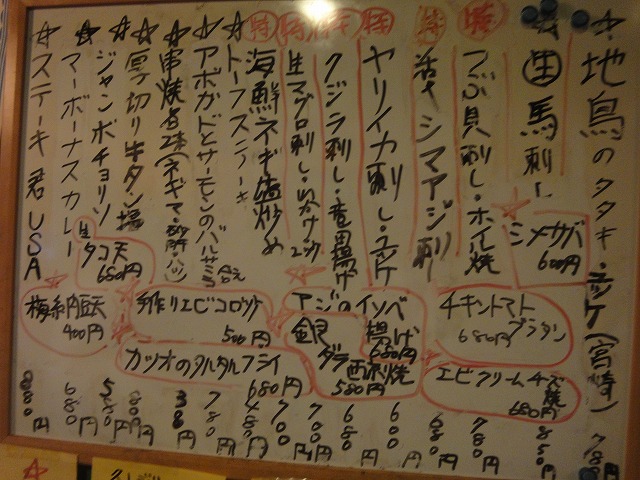 ☆地鳥のタタキ・ユッケ(宮崎) 780円
☆生馬刺し 850円
シメサバ 600円
特 つぶ貝刺し・ホイル焼 780円
特 活〆シマアジ刺 680円
特 ヤリイカ刺し・ユッケ 600円
特 クジラ刺し・竜田揚げ 680円
特 生マグロ刺し・ 700円
特 海鮮ネギ塩炒め 700円
☆トーフステーキ 480円
☆アボカドとサーモンのバルサミコ合え 780円
☆串焼各2本(ネギマ・砂肝・ハツ) 300円
☆厚切り牛タン塩 880円
☆ジャンボチョリソ 580円
☆マーボーナスカレー 680円
☆ステーキ君USA 880円
生タコ天 680円
梅納豆天 400円
手作りエビコロッケ 500円
カツオのタルタルフライ 680円
アジのイソベ揚げ 680円
銀ダラ西京焼 580円
チキントマトグラタン 680円
エビクリームチーズ焼 680円